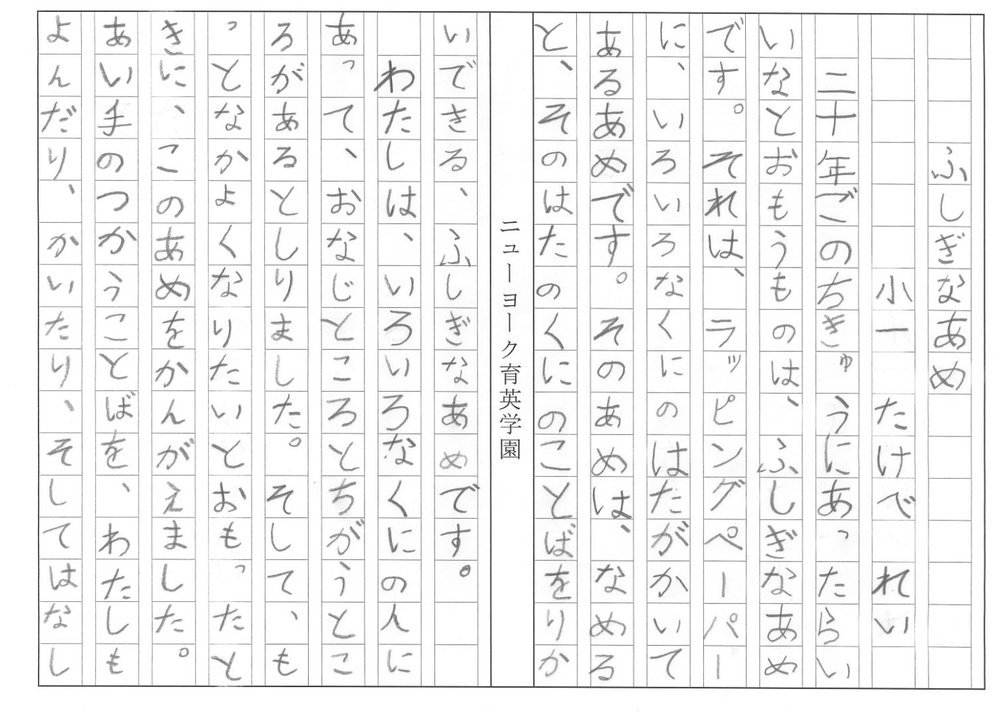 ふしぎなあめ
小一 たけべ れい
二十年ごのちきゅうにあったらい
いなとおもうものは、ふしぎなあめ
です。それは、ラッピングペーパー
に、いろいろなくにのはたがかいて
あるあめです。そのあめは、なめる
と、そのはたのくにのことばをりか
ニューヨーク育英学園
いできる、ふしぎなあめです。
わたしは、いろいろなくにの人に
あって、おなじところとちがうとこ
ろがあるとしりました。そして、も
っとなかよくなりたいとおもったと
き に、このあめをかんがえました。
あい手のつかうことばを、わたしも
よんだり、かいたり、そしてはなし